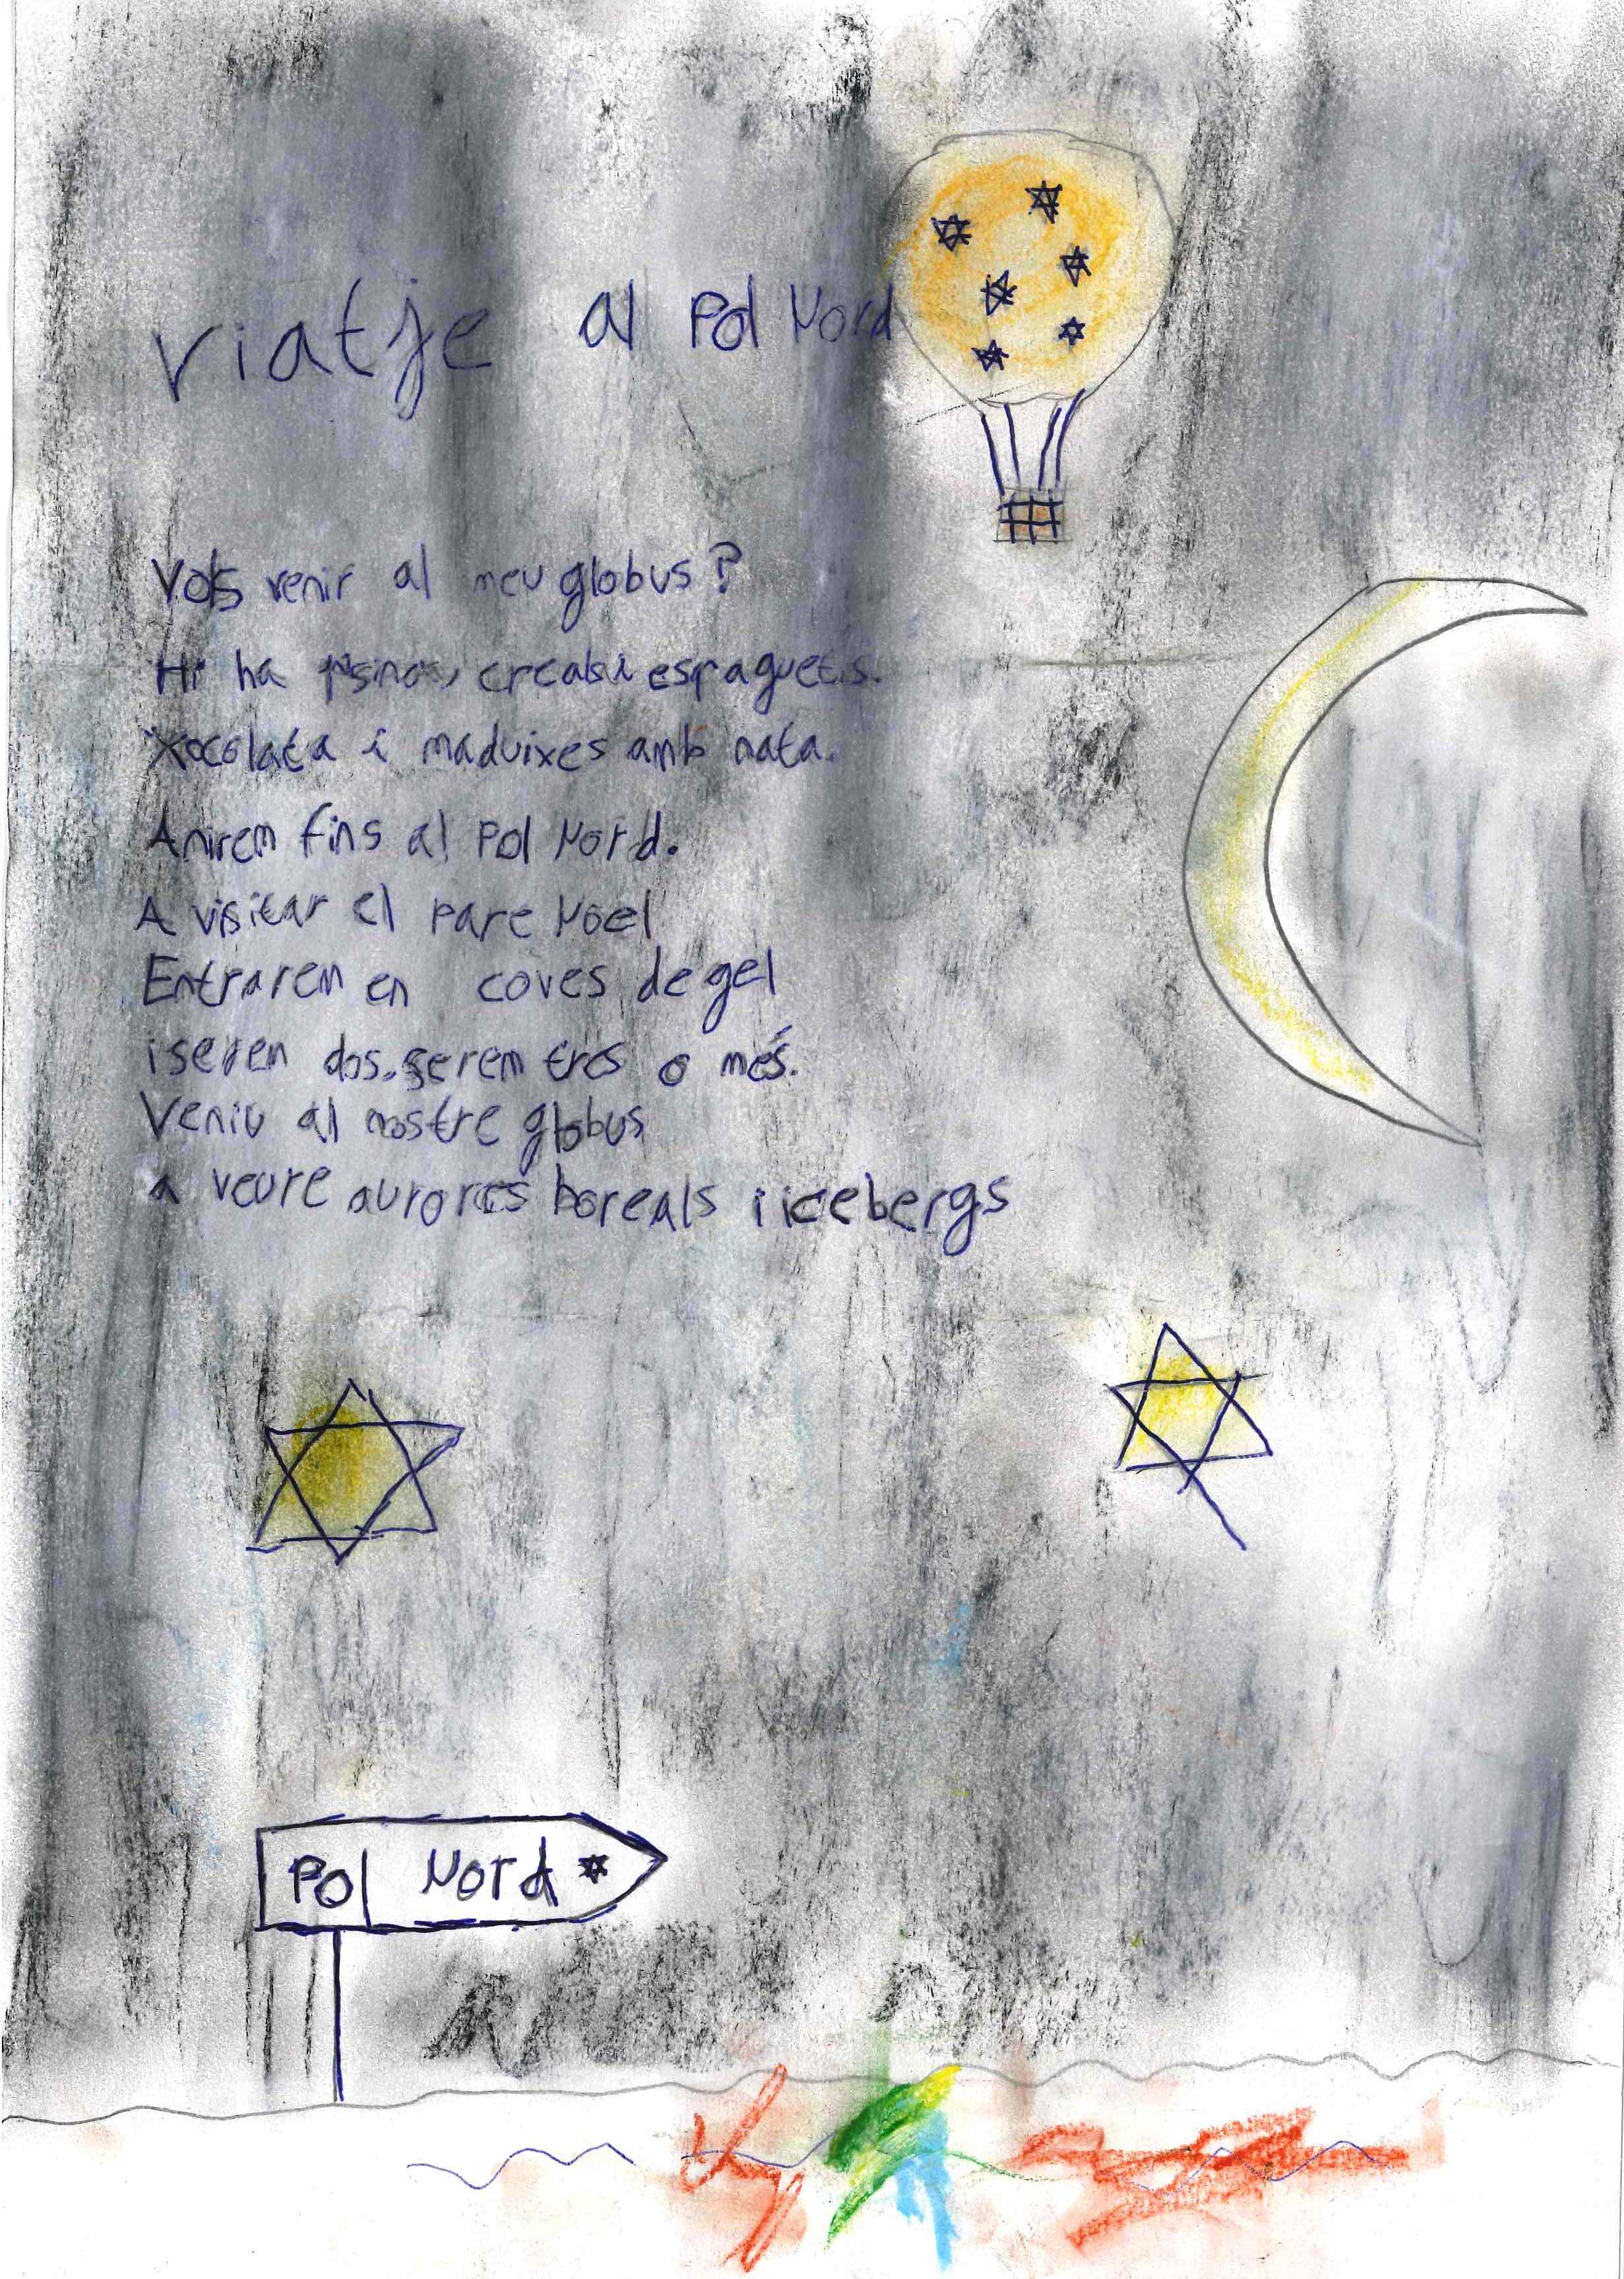 viatje al Pol Nord
Vols venir al meu globus?
Hi ha creals i espaguetis.
Xocolata i maduixes amb nata.
Anirem fins al Pol Nord.
A visitar el pare Noel
Entrarem en coves de gel
i seren dos, serem tres o més.
Veniu al nostre globus
a veure aurores boreals i icebergs
Pol Nord